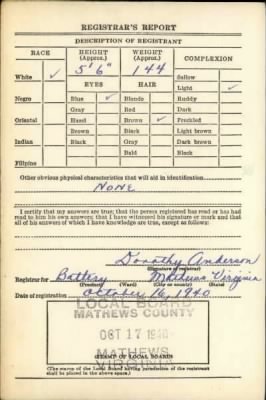 REGISTRAR'S REPORT
DESCRIPTION OF REGISTRANT
RACE HEIGHT (Approx.) WEIGHT (Approx.) COMPLEXION
5' 6" 144
White ✓ Sallow
EYES HAIR Light ✓
Negro Blue ✓ Blonde Ruddy
Gray Red Dark
Oriental Hazel Brown ✓ Freckled
Brown Black Light brown
Indian Black Gray Dark brown
Bald Black
Filipino
Other obvious physical characteristics that will aid in identification
None
I certify that my answers are true; that the person registered has read or has had
read to him his own answers; that I have witnessed his signature or mark and that
all of his answers of which I have knowledge are true, except as follows:
Dorothy Anderson
(Signature of registrar)
Registrar for Battery Mathews Virginia
(Precinct) (Ward) (City or county) (State)
Date of registration October 16, 1940
LOCAL BOARD
MATHEWS COUNTY
OCT 17 1940
MATHEWS
VIRGINIA
(STAMP OF LOCAL BOARD)
(The stamp of the Local Board having jurisdiction of the registrant
shall be placed in the above space.)